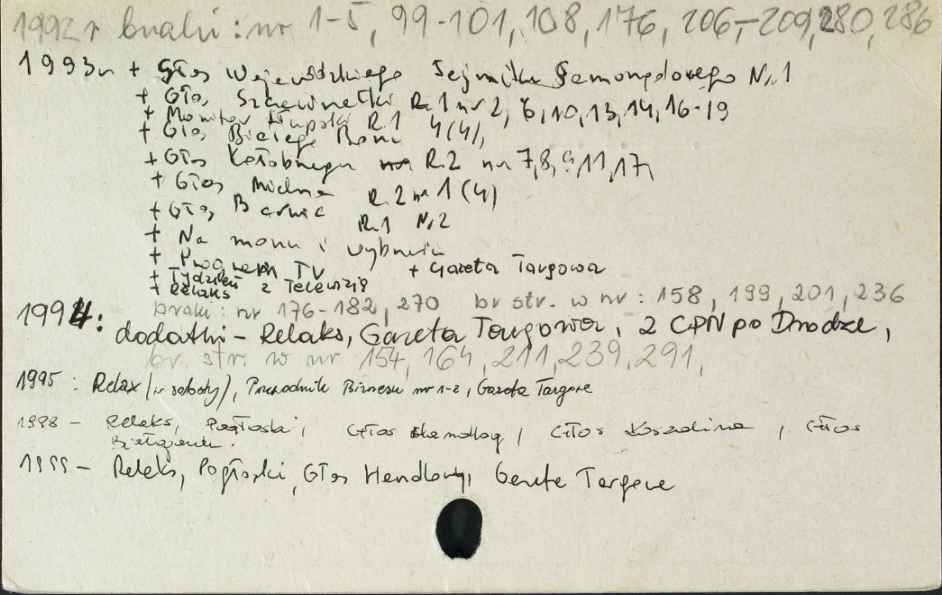 1992 r braki: nr 1-5, 99-101, 108, 176, 206-209, 280, 286
1993 r + Głos Wojewódzkiego Sejmiku Samorządowego Nr 1
+ Głos Szczecinecki R.1 nr 2, 6, 10, 13, 14, 16-19
+ Monitor Słupski R.1 4(4),
+ Głos Białego Boru
+ Głos Kołobrzegu R.2 nr 7,8,9,11,17,
+ Głos Mielna R.2 nr 1(4)
+ Głos Barwic R.1 Nr 2
+ Na
+ Program TV + Gazeta Targowa
+ Tydzień z Telewizją
+ Relaks
braki: nr 176-182, 270 br str. w nr: 158, 199, 201, 236
1994: dodatki - Relaks, Gazeta Targowa, Z CPN po Drodze,
br. str. w nr 154, 164, 211, 239, 291,
1995: Relax (w soboty), Przewodnik Biznesu nr 1-2, Gazeta Targowa
1998 - Relaks, Pogłoski, Głos Handlowy, Głos Koszalina, Głos
1999 - Relaks, Pogłoski, Głos Handlowy, Gazeta Targowa